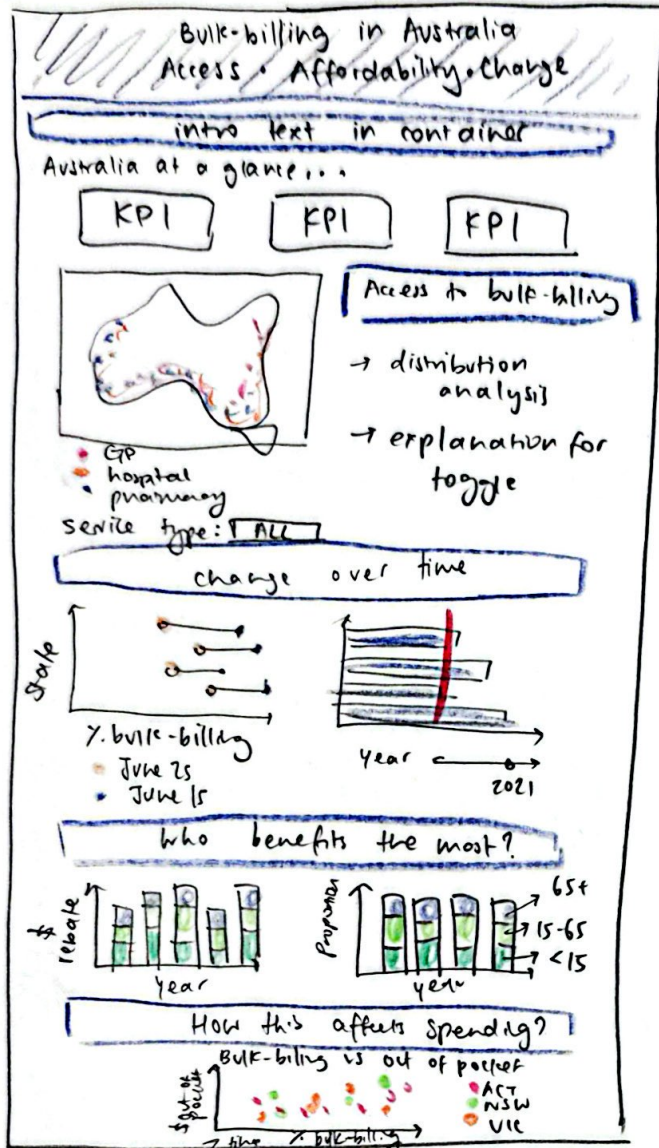 Bulk-billing in Australia
Access • Affordability • Change
intro text in container
Australia at a glance...
KPI KPI KPI
Access to bulk-billing
→ distribution
analysis
→ explanation for
toggle
GP
hospital
pharmacy
Service type: ALL
change over time
State
% bulk-billing
June 25
June 15
year
2021
Who benefits the most?
$ rebate
year
Proportion
year
65+
15-65
<15
How this affects spending?
Bulk-biling vs out of pocket
$ out of
pocket
% bulk-billing
time
ACT
NSW
VIC